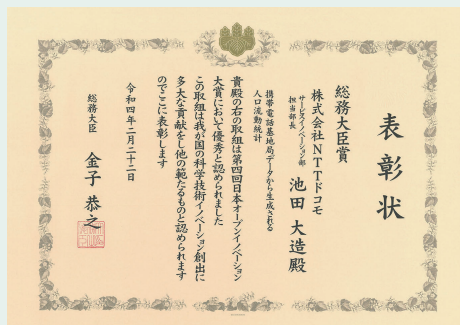 表彰状
総務大臣賞
株式会社NTTドコモ
サービスイノベーション部
担当部長
池田 大造殿
携帯電話基地局データから生成される
人口流動統計
貴殿の右の取組は第四回日本オープンイノベーション
大賞において優秀と認められました
この取組は我が国の科学技術イノベーション創出に
多大な貢献をし他の範たるものと認められます
のでここに表彰します
令和四年二月二十二日
総務大臣 金子 恭之